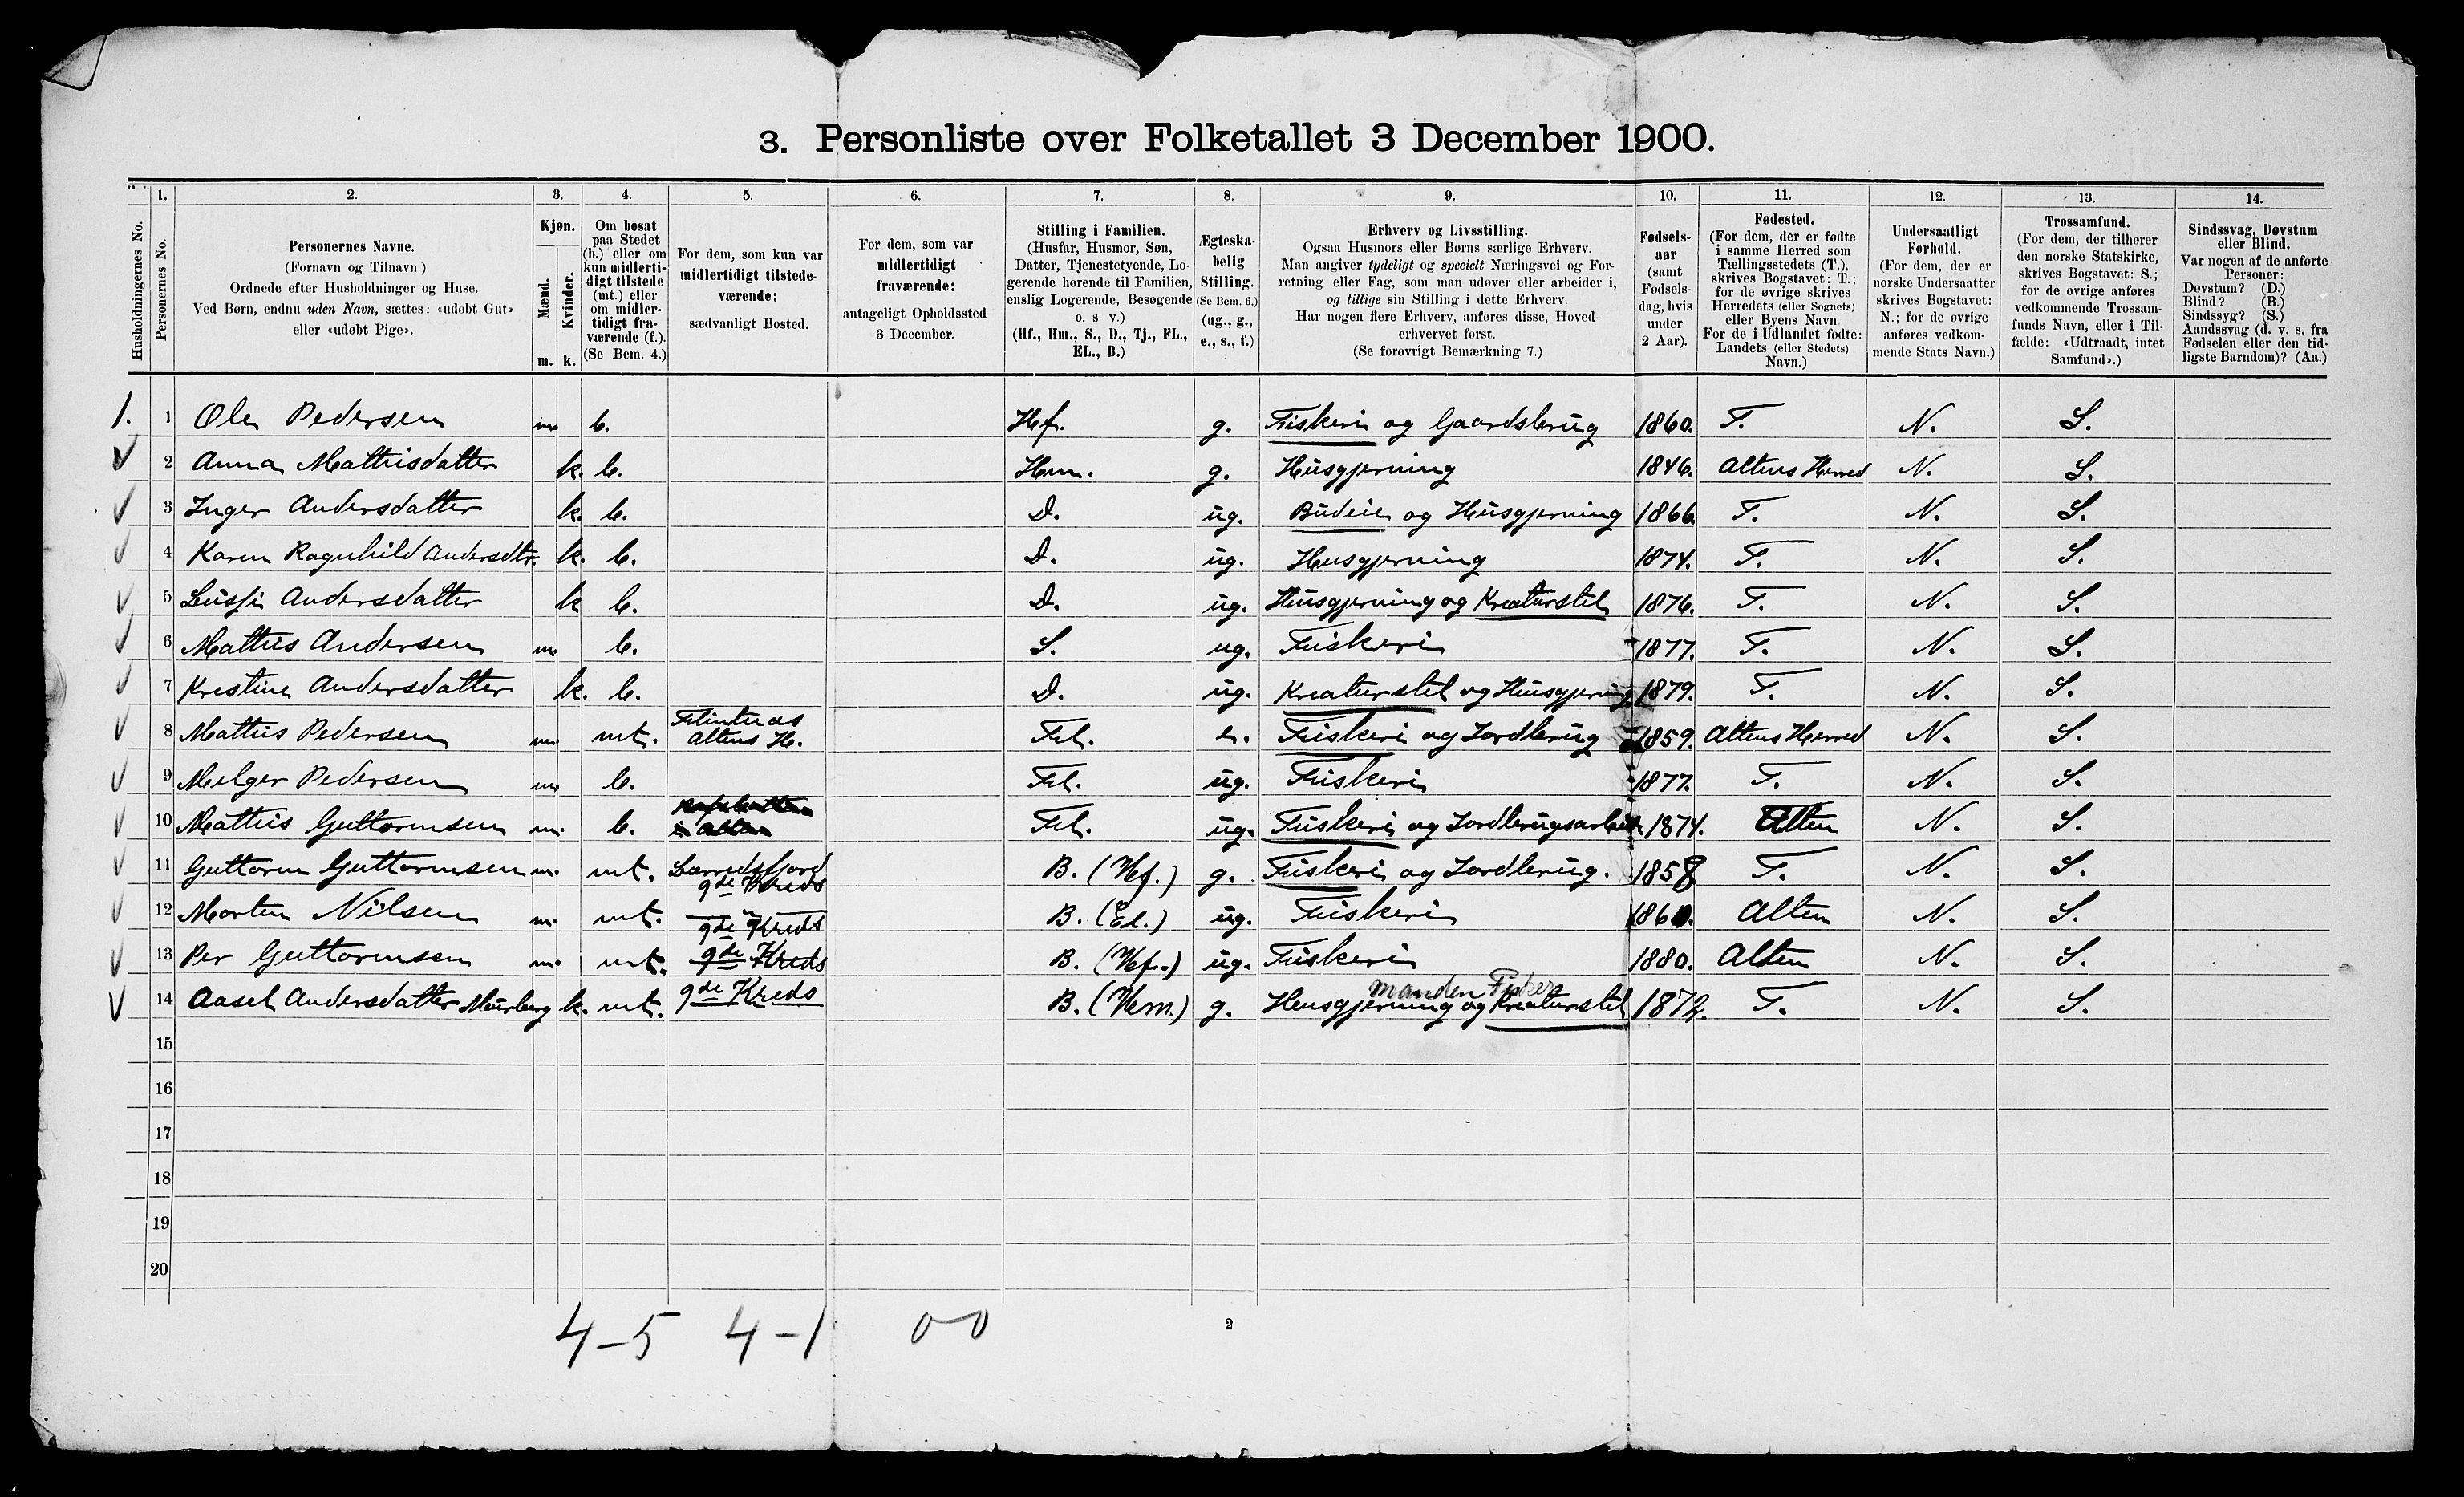 3. Personliste over Folketallet 3 December 1900.
Husholdningernes No.
1.
Personernes No.
2.
Personernes Navne.
(Fornavn og Tilnavn)
Ordnede efter Husholdninger og Huse.
Ved Børn, endnu uden Navn, sættes: «udøbt Gut»
eller «udøbt Pige».
3.
Kjøn.
Mænd.
Kvinder.
m. k.
4.
Om bosat
paa Stedet
(b.) eller om
kun midlerti-
digt tilstede
(mt.) eller
om midler-
tidigt fra-
værende (f.).
(Se Bem. 4.)
5.
For dem, som kun var
midlertidigt tilstede-
værende:
sædvanligt Bosted.
6.
For dem, som var
midlertidigt
fraværende:
antageligt Opholdssted
3 December.
7.
Stilling i Familien.
(Husfar, Husmor, Søn,
Datter, Tjenestetyende, Lo-
gerende hørende til Familien,
enslig Logerende, Besøgende
o. s v.)
(Hf., Hm., S., D., Tj., FL.,
EL., B.)
8.
Ægteska-
belig
Stilling.
(Se Bem. 6.)
(ug., g.,
e., s., f.)
9.
Erhverv og Livsstilling.
Ogsaa Husmors eller Børns særlige Erhverv.
Man angiver tydeligt og specielt Næringsvei og For-
retning eller Fag, som man udøver eller arbeider i,
og tillige sin Stilling i dette Erhverv.
Har nogen flere Erhverv, anføres disse, Hoved-
erhvervet først.
(Se forøvrigt Bemærkning 7.)
10.
Fødsels-
aar
(samt
Fødsels-
dag, hvis
under
2 Aar).
11.
Fødested.
(For dem, der er fødte
i samme Herred som
Tællingsstedets (T.),
skrives Bogstavet: T.;
for de øvrige skrives
Herredets (eller Sognets)
eller Byens Navn
For de i Udlandet fødte:
Landets (eller Stedets)
Navn.)
12.
Undersaatligt
Forhold.
(For dem, der er
norske Undersaatter
skrives Bogstavet:
N.; for de øvrige
anføres vedkom-
mende Stats Navn.)
13.
Trossamfund.
(For dem, der tilhører
den norske Statskirke,
skrives Bogstavet: S.;
for de øvrige anføres
vedkommende Trossam-
funds Navn, eller i Til-
fælde: «Udtraadt, intet
Samfund».)
14.
Sindssvag, Døvstum
eller Blind.
Var nogen af de anførte
Personer:
Døvstum? (D.)
Blind? (B.)
Sindssyg? (S.)
Aandssvag (d. v. s. fra
Fødselen eller den tid-
ligste Barndom)? (Aa.)
1. 1 Ole Pedersen m. b. Hf. g. Fiskeri og Gaardsbrug 1860. T. N. S.
2 Anna Mathisdatter k. b. Hm. g. Husgjerning 1846. Altens Herred N. S.
3 Inger Andersdatter k. b. D. ug. Budeie og Husgjerning 1866 T. N. S.
4 Karen Ragnhild Andersdtr. k. b. D. ug. Husgjerning 1874. T. N. S.
5 Andersdatter k b. D. ug. Husgjerning og Kreaturstel 1876. T. N. S.
6 Mathis Andersen m. b. S. ug. Fiskeri 1877. T. N. S.
7 Kristine Andersdatter k. b. D. ug. Kreaturstel og Husgjerning 1879. T. N. S.
8 Mathis Pedersen m. mt. Flintnæs
Altens H. Fl. e. Fiskeri og Jordbrug 1859. Altens Herred N. S.
9 Pedersen m b. Fl. ug. Fiskeri 1877. T. N. S.
10 Mathis Guttormsen m. b. Fl. ug. Fiskeri og Jordbrugsarbeid 1874. Alten N. S.
11 Guttorm Guttormsen m. mt. Lerredsfjord
9de Kreds B. (Hf.) g. Fiskeri og Jordbrug. 1858 T. N. S.
12 Morten Nilsen m. mt. — " —
9de Kreds B. (El.) ug. Fiskeri 1860. Alten N. S.
13 Per Guttormsen m. mt. 9de Kreds B. (Hf.) ug. Fiskeri 1880. Alten N. S.
manden Fisker
14 Aasel Andersdatter Murberg k. mt. 9de Kreds B. (Hm.) g. Husgjerning og Kreaturstel 1872. T. N. S.
15
16
17
18
19
20
4-5 4-1 0-0
2